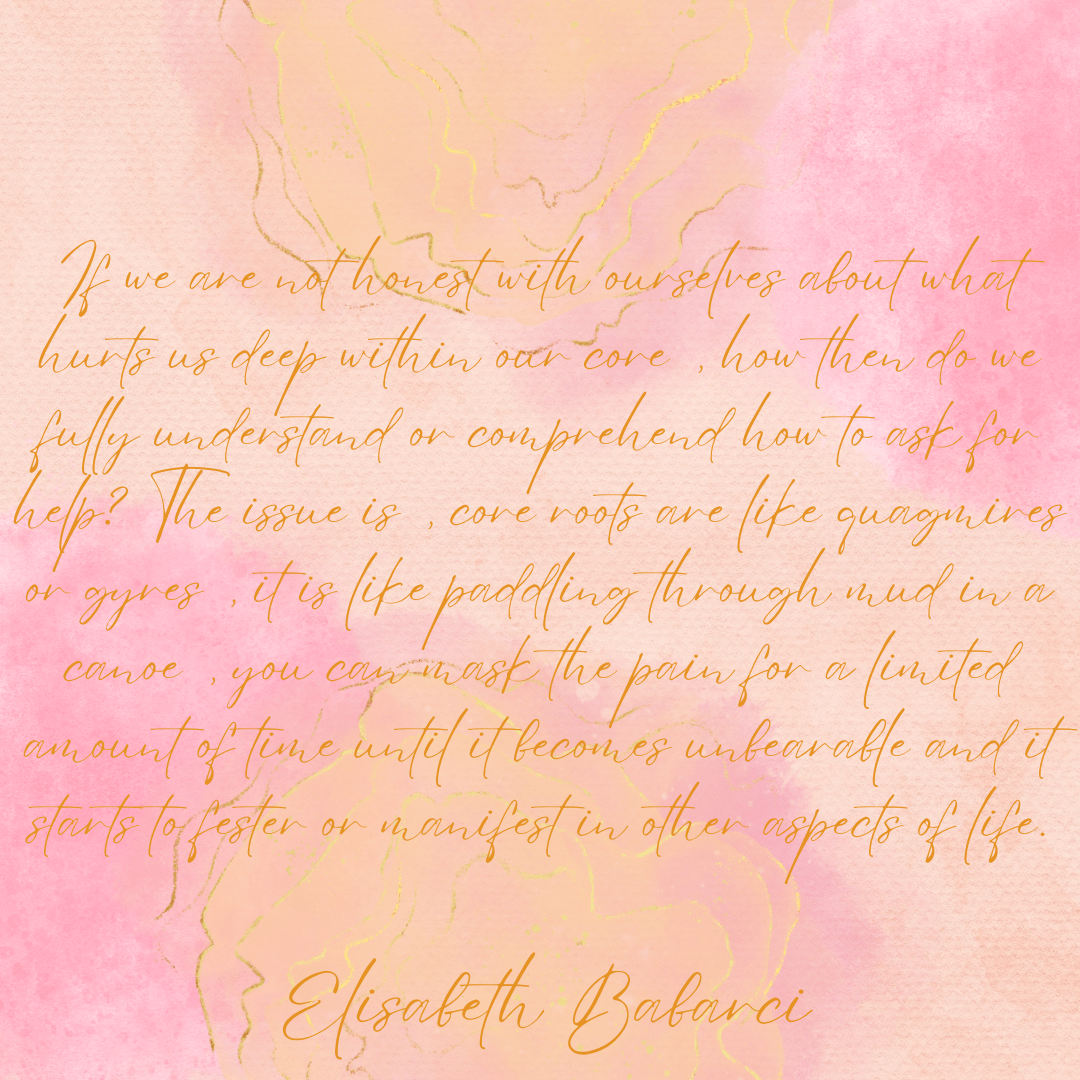 If we are not honest with ourselves about what
hurts us deep within our core , how then do we
fully understand or comprehend how to ask for
help? The issue is , core roots are like quagmires
or gyres , it is like paddling through mud in a
canoe , you can mask the pain for a limited
amount of time until it becomes unbearable and it
starts to fester or manifest in other aspects of life.
Elisabeth Babarci